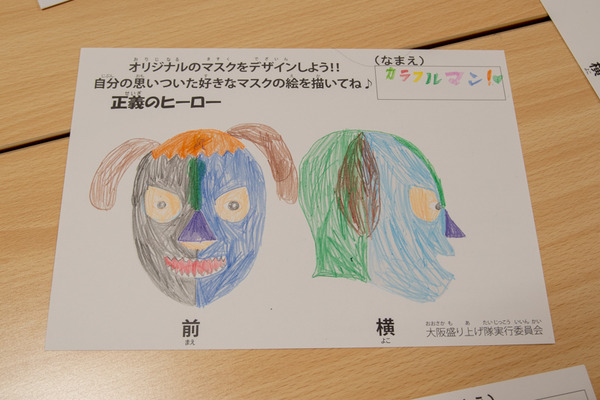 オリジナルのマスクをデザインしよう!!
自分の思いついた好きなマスクの絵を描いてね♪
正義のヒーロー
(なまえ)
カラフルマン!
前
まえ
横
よこ
おおさか も あ たい じっこう いいん かい
大阪盛り上げ隊実行委員会